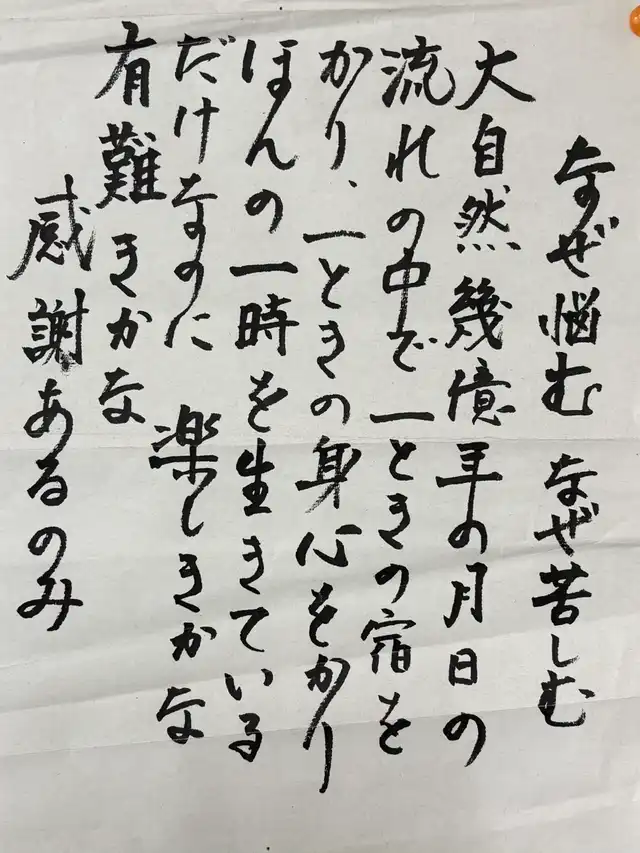 なぜ悩む なぜ苦しむ
大自然幾億年の月日の
流れの中で一ときの宿を
かり、一ときの身心をかり
ほんの一時を生きている
だけなのに 楽しきかな
有難きかな
感謝あるのみ